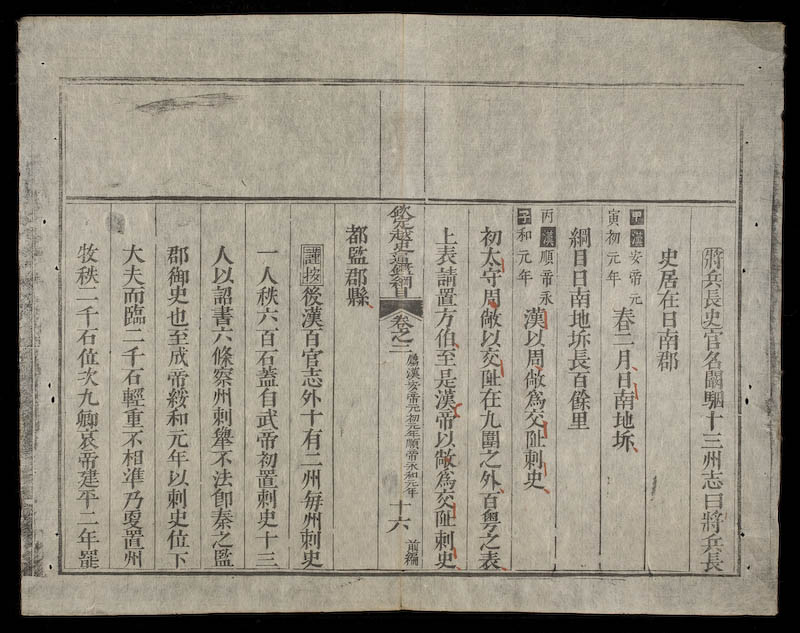 將兵長史官名闞駰十三州志曰將兵長
史居在日南郡
甲寅漢安帝元初元年春二月日南地坼
綱目日南地坼長百餘里
丙子漢順帝永和元年漢以周敞爲交阯刺史
初太守周敞以交阯在九圍之外百粤之表
上表請置方伯至是漢帝以敞爲交阯刺史
欽定越史通鑑綱目 卷之二 屬漢安帝元初元年順帝永和元年 十六 前編
都監郡縣
謹按後漢百官志外十有二州每州刺史
一人秩六百石蓋自武帝初置刺史十三
人以詔書六條察州刺舉不法卽秦之監
郡御史也至成帝綏和元年以刺史位下
大夫而臨二千石輕重不相準乃更置州
牧秩二千石位次九卿哀帝建平二年罷